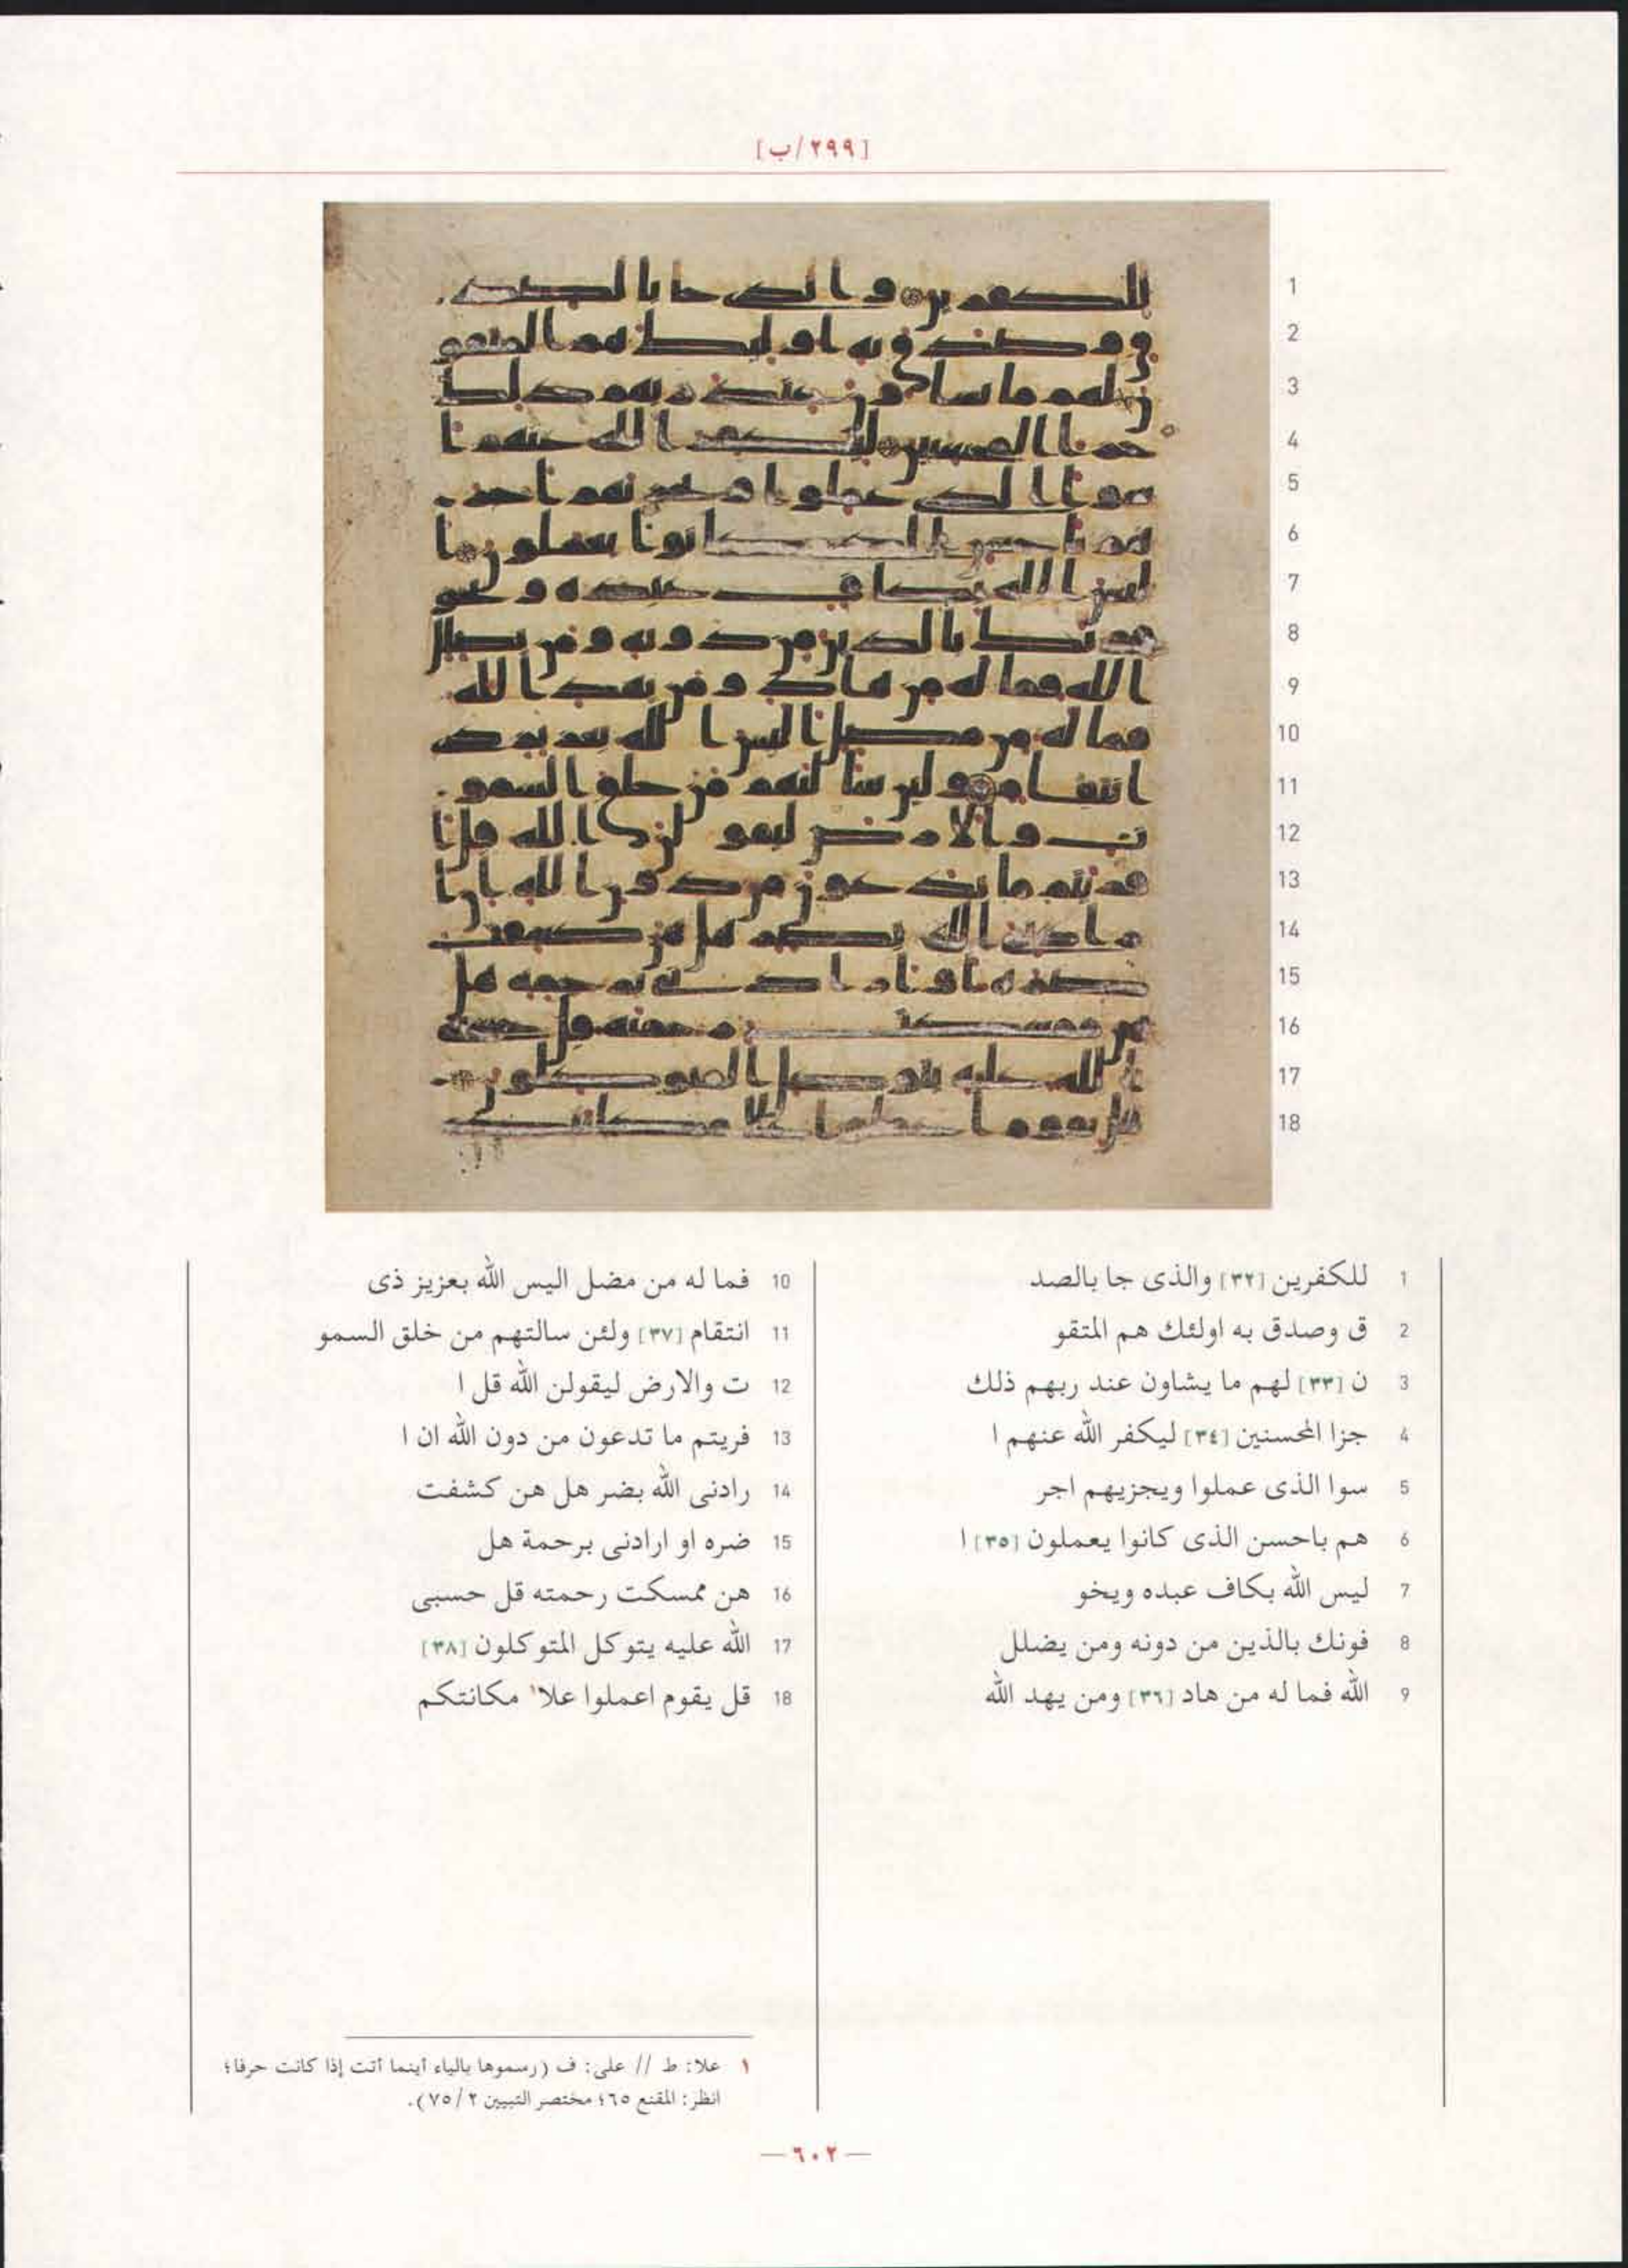 [٢٩٩/ب]
1 للكفرين [٣٢] والذى جا بالصد
2 ق وصدق به اولئك هم المتقو
3 ن [٣٣] لهم ما يشاون عند ربهم ذلك
4 جزا المحسنين [٣٤] ليكفر الله عنهم ا
5 سوا الذى عملوا ويجزيهم اجر
6 هم باحسن الذى كانوا يعملون [٣٥] ا
7 ليس الله بكاف عبده ويخو
8 فونك بالذين من دونه ومن يضلل
9 الله فما له من هاد [٣٦] ومن يهد الله
10 فما له من مضل اليس الله بعزيز ذى
11 انتقام [٣٧] ولئن سالتهم من خلق السمو
12 ت والارض ليقولن الله قل ا
13 فريتم ما تدعون من دون الله ان ا
14 رادنى الله بضر هل هن كشفت
15 ضره او ارادنى برحمة هل
16 هن ممسكت رحمته قل حسبى
17 الله عليه يتوكل المتوكلون [٣٨]
18 قل يقوم اعملوا علا١ مكانتكم
١ علا: ط // على: ف (رسموها بالياء أينما أتت إذا كانت حرفا؛
انظر: المقنع ٦٥؛ مختصر التبيين ٢/ ٧٥).
— ٦٠٢ —